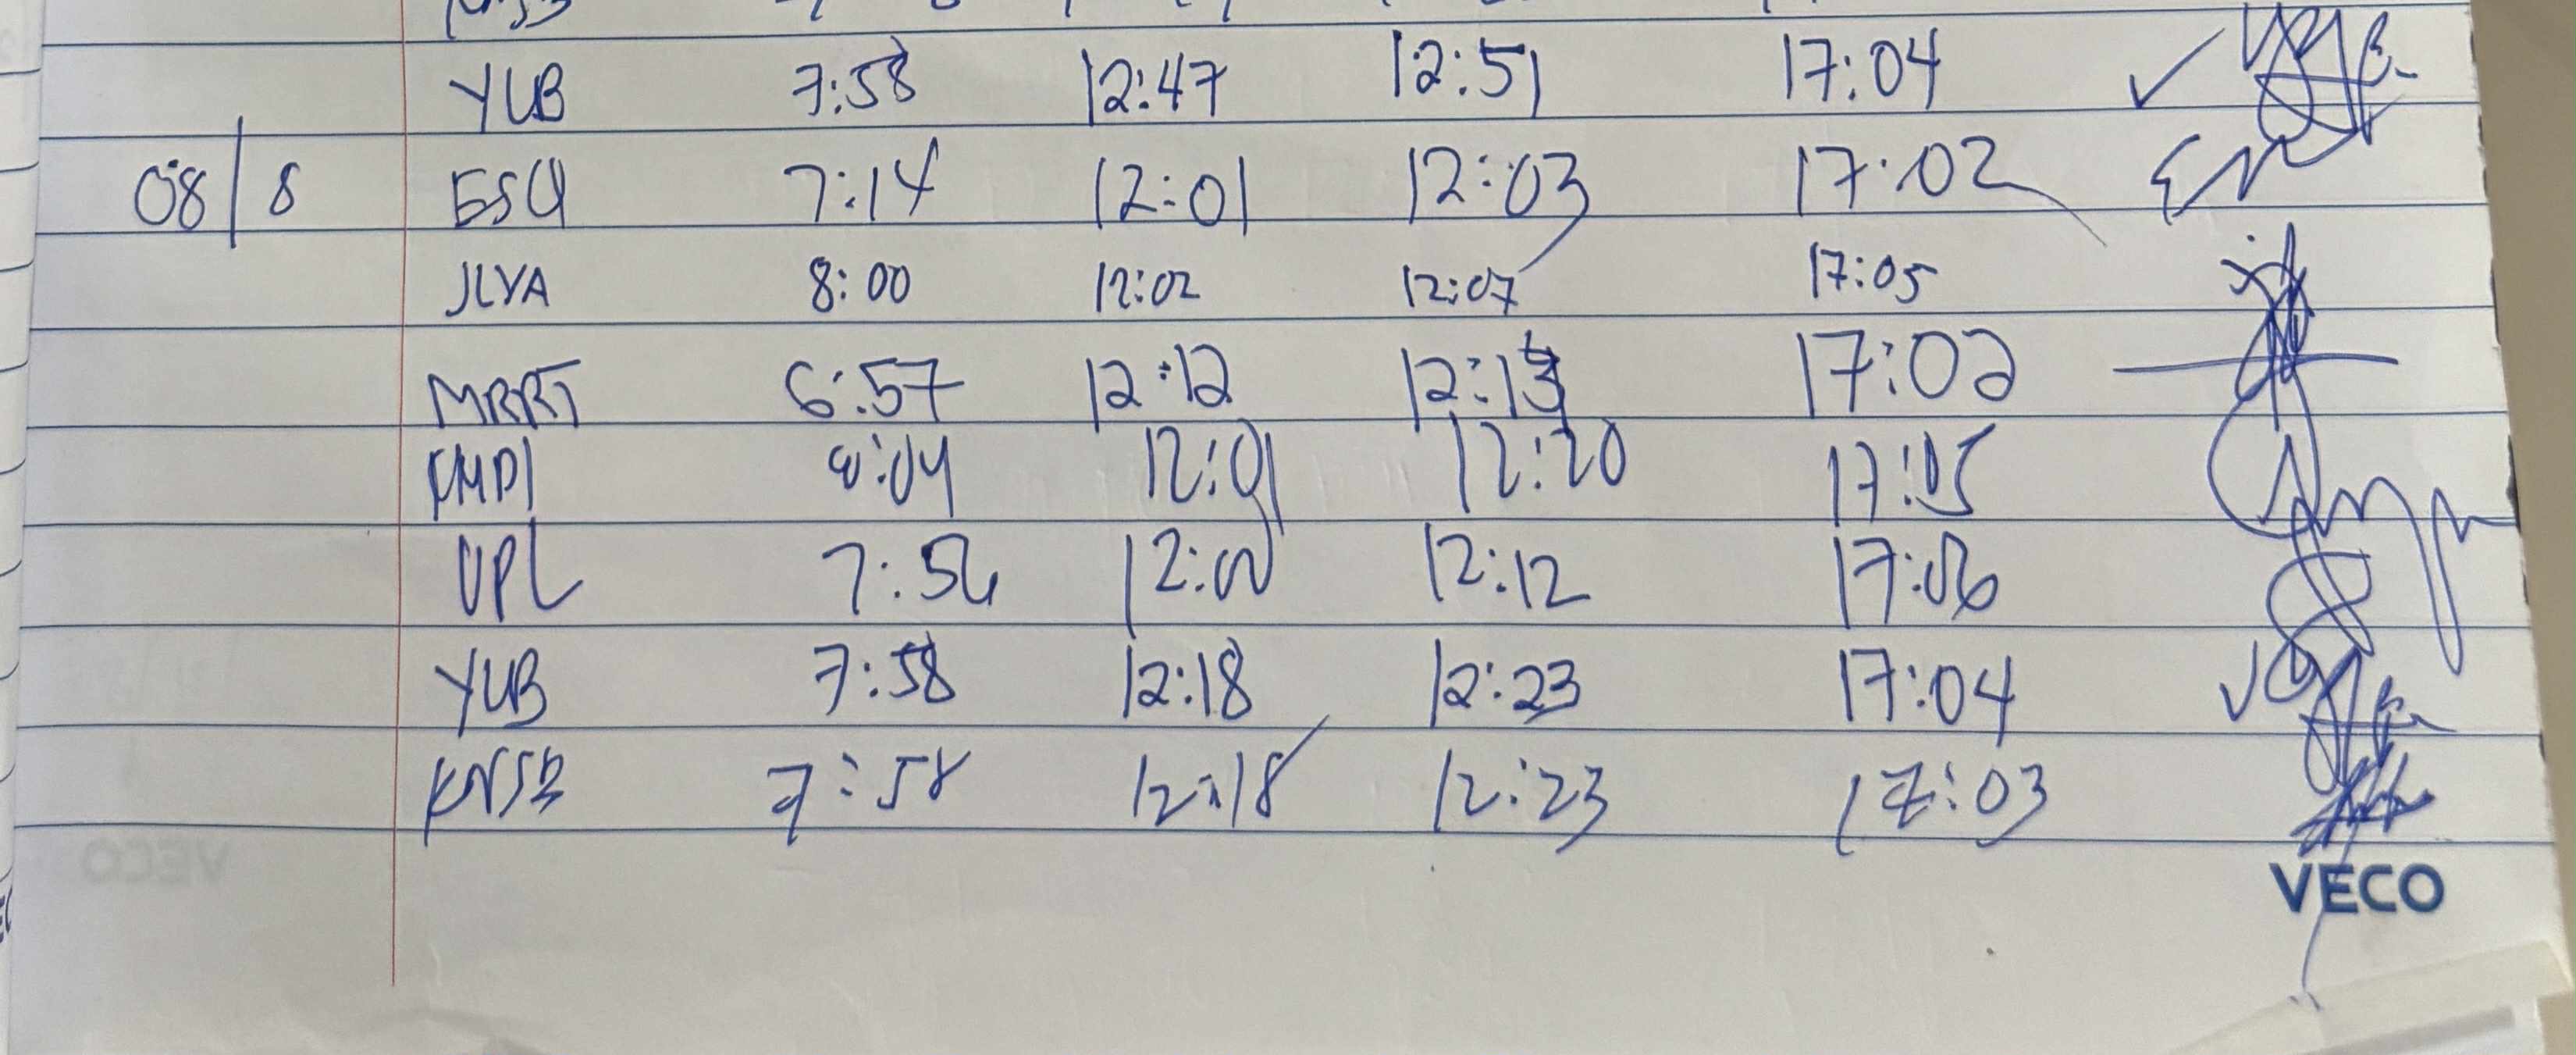 YLB 7:58 12:47 12:51 17:04 ✓
08/8 ESQ 7:14 12:01 12:03 17:02
JLYA 8:00 12:02 12:07 17:05
MRRT 6:57 12:12 17:02
8:04 12:01 12:20 17:05
UPL 7:56 12:00 12:12 17:06
YLB 7:58 12:18 12:23 17:04 ✓
KNSB 7:58 12:18 12:23 17:03
VECO